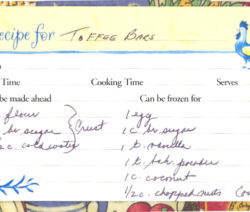 ecipe for TOFFEE BARS
Time Cooking Time Serves
be made ahead Can be frozen for
flour 1 egg
br sugar Crust 1 c br sugar
1/2 c. cold water 1 t. vanilla
1 t. bak. powder
1 c. coconut
1/2 c. chopped nuts